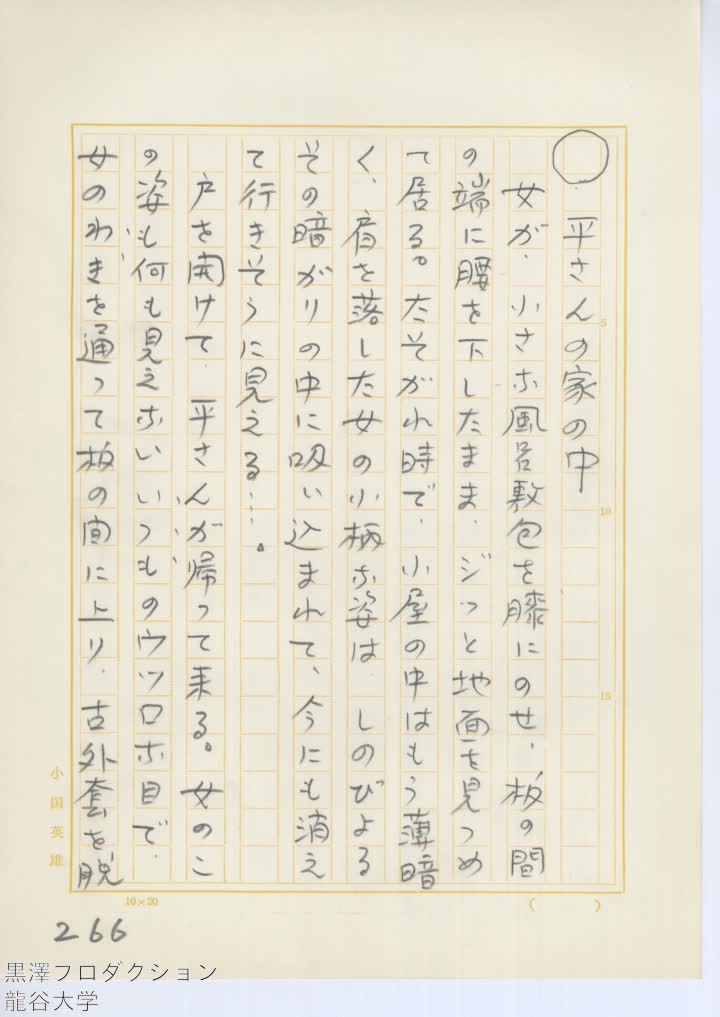 ○ 平さんの家の中
女が、小さな風呂敷包を膝にのせ、板の間
の端に腰を下したまま、ジッと地面を見つめ
て居る。たそがれ時で、小屋の中はもう薄暗
く、肩を落した女の小柄な姿は、しのびよる
その暗がりの中に吸い込まれて、今にも消え
て行きそうに見える…。
戸を開けて、平さんが帰って来る。女のこ
の姿も何も見えないいつものウツロな目で、
女のわきを通って板の間に上り、古外套を脱
5
10
15
小国英雄
10×20
( )
266
黒澤プロダクション
龍谷大学